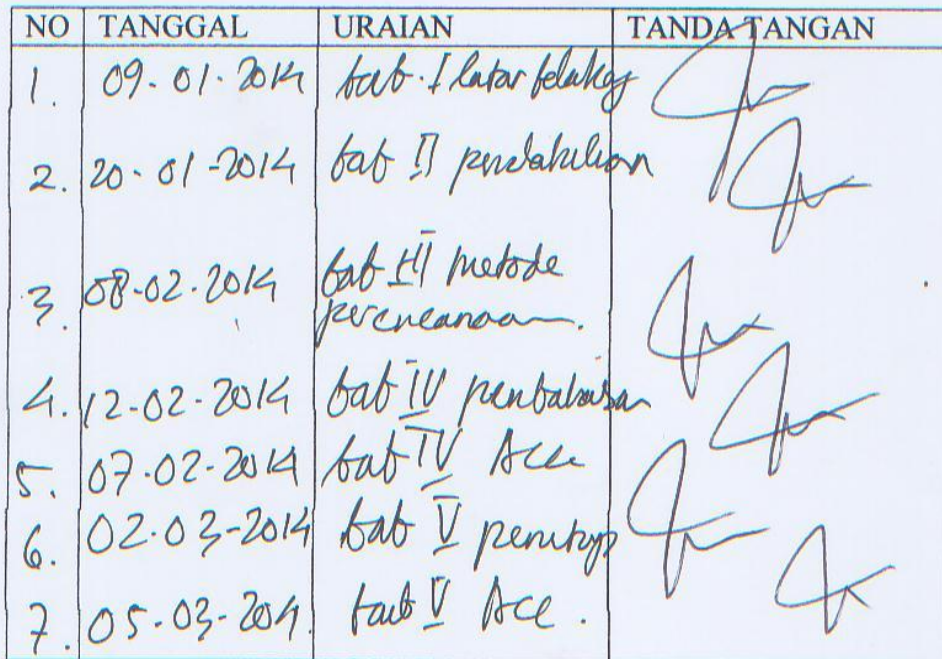 NO TANGGAL URAIAN TANDA TANGAN
1. 09-01-2014 bab I latar belakang
2. 20-01-2014 bab II pendahuluan
3. 08-02-2014 bab III metode
perencanaan.
4. 12-02-2014 bab IV pembahasan
5. 07-02-2014 bab IV Acc
6. 02-03-2014 bab V penutup
7. 05-03-2014. bab V Acc.